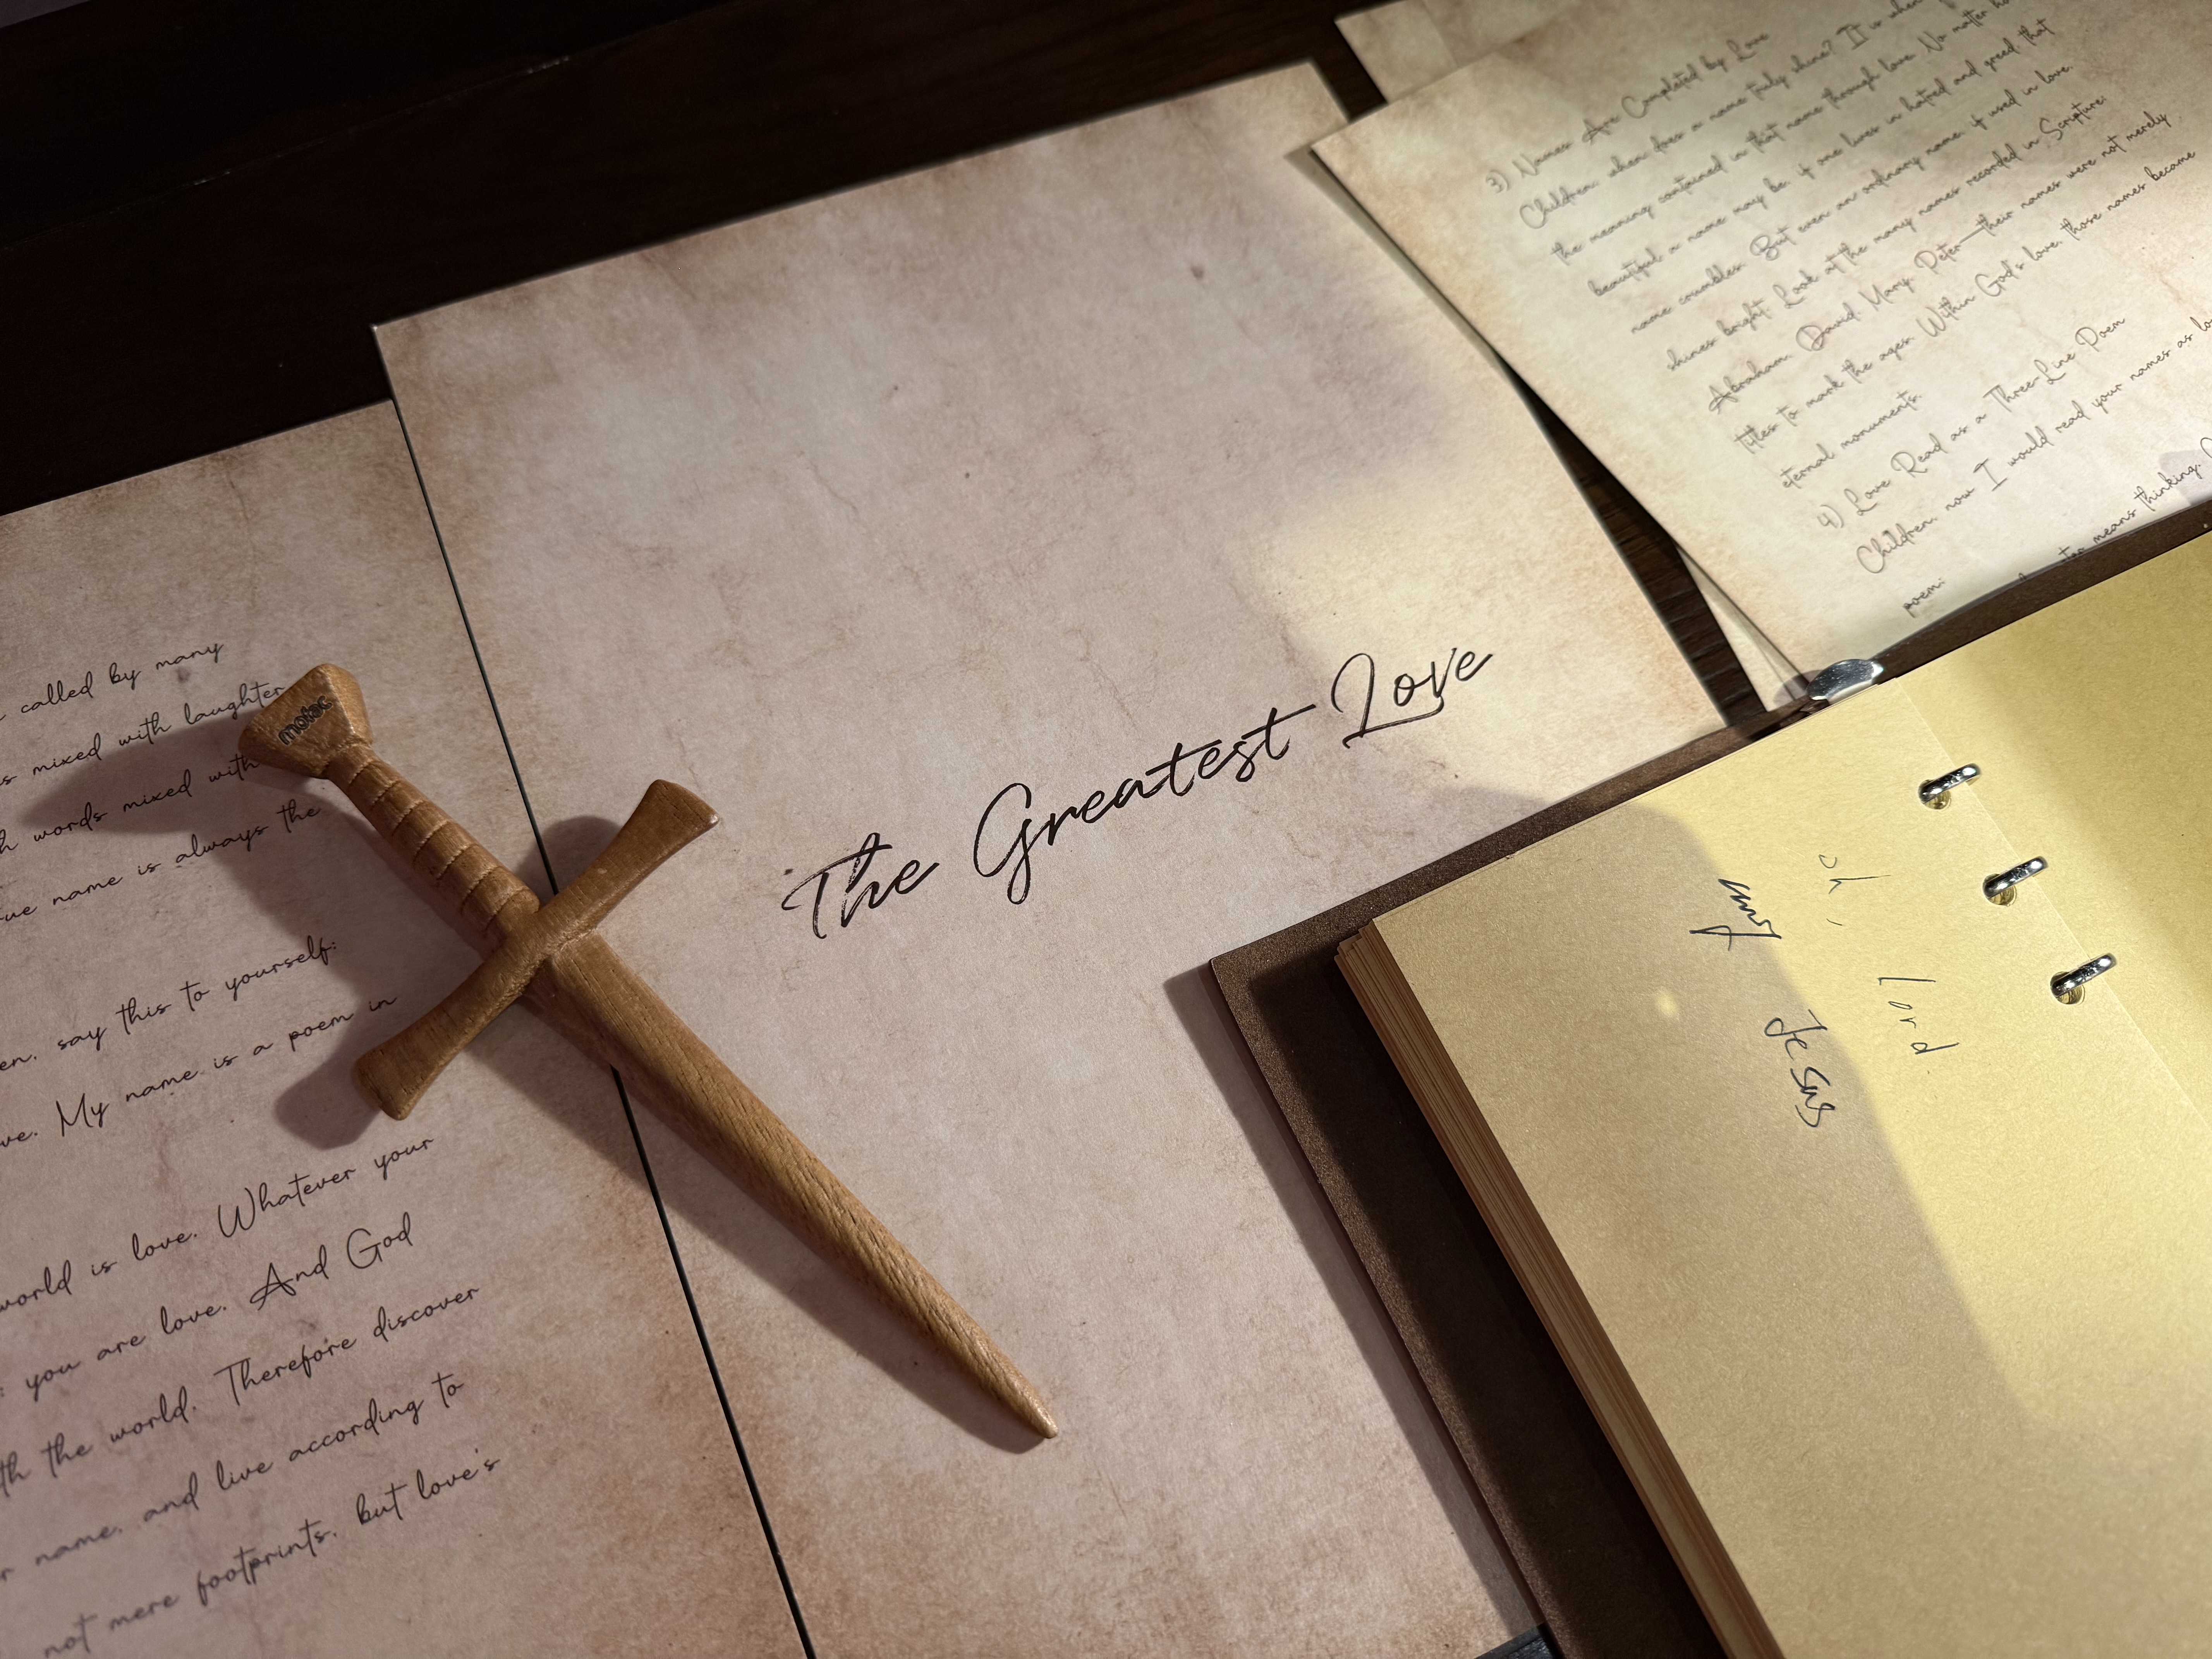 called by many
mixed with laughter
words mixed with
name is always the
say this to yourself:
My name is a poem in
world is love. Whatever your
you are love. And God
the world. Therefore discover
name, and live according to
not mere footprints, but love's
motac
The Greatest Love
3) Names Are Completed by Love
Children, when does a name truly shine? It is when
the meaning contained in that name through love. No matter
beautiful a name may be, if one lives in hatred and greed that
name crumbles. But even an ordinary name, if used in love,
shines bright. Look at the many names recorded in Scripture:
Abraham, David, Mary, Peter—their names were not merely
titles to mark the ages. Within God's love, those names became
eternal monuments.
4) Love Read as a Three-Line Poem
Children, now I would read your names as
poem:
means thinking.
oh, lord
my Jesus